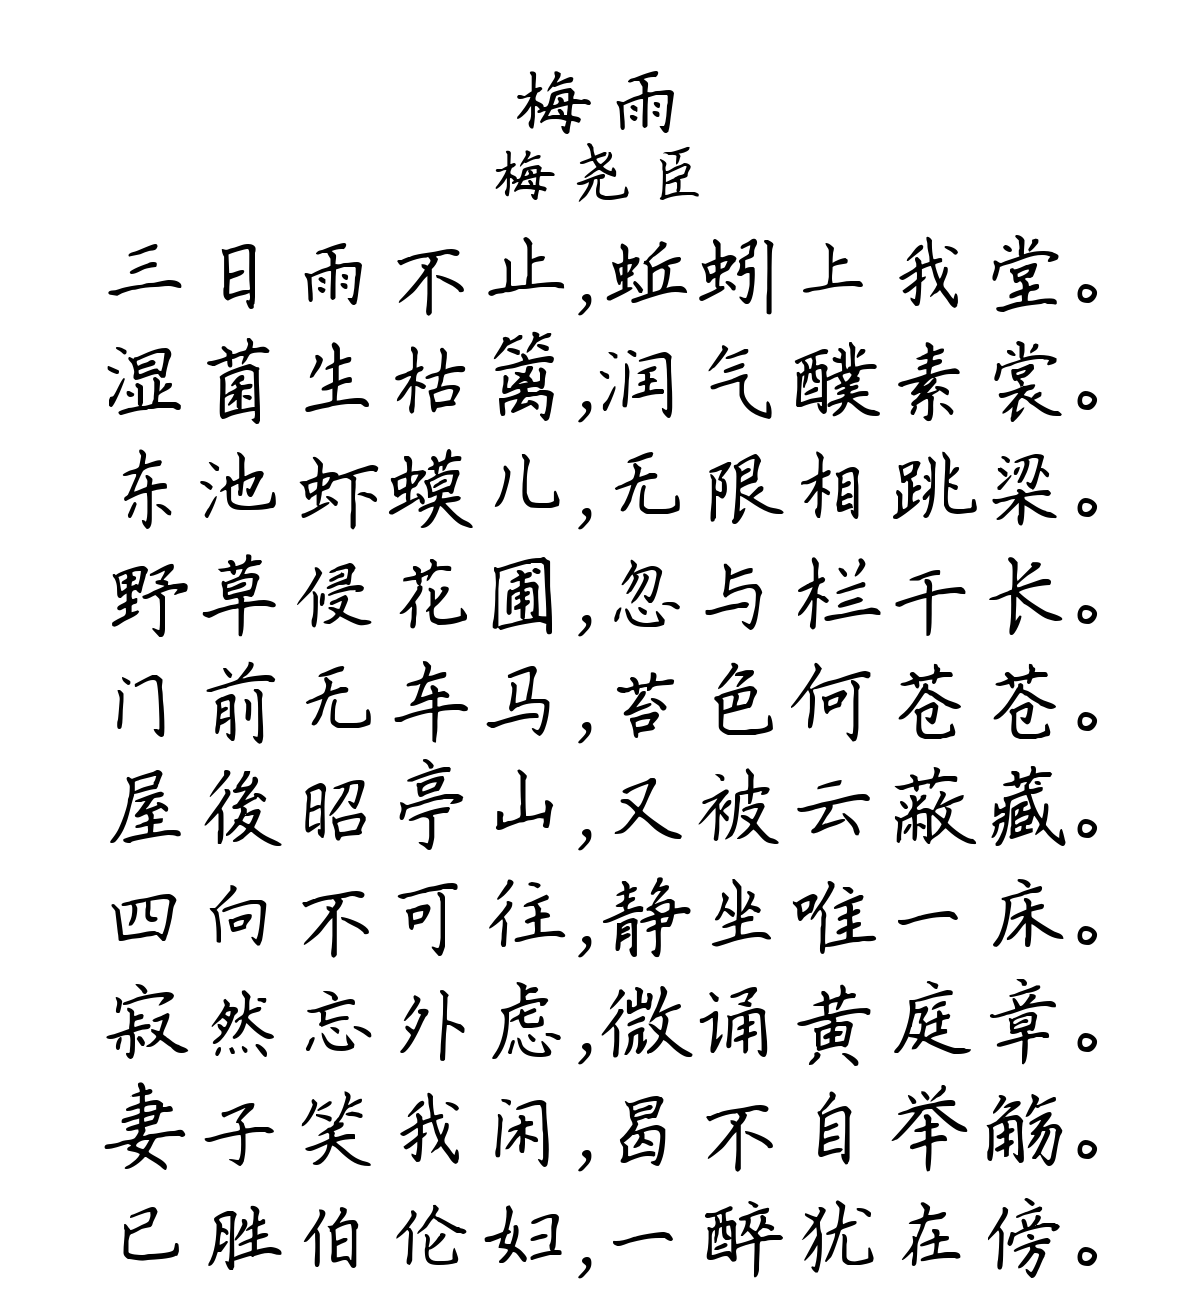 梅雨
梅尧臣
三日雨不止,蚯蚓上我堂。
湿菌生枯篱,润气醭素裳。
东池虾蟆儿,无限相跳梁。
野草侵花圃,忽与栏干长。
门前无车马,苔色何苍苍。
屋後昭亭山,又被云蔽藏。
四向不可往,静坐唯一床。
寂然忘外虑,微诵黄庭章。
妻子笑我闲,曷不自举觞。
已胜伯伦妇,一醉犹在傍。